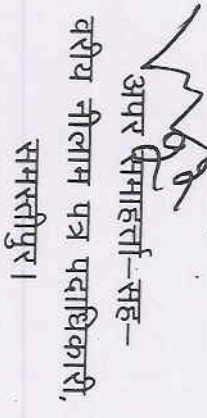 अपर समाहर्ता–सह–
वरीय नीलाम पत्र पदाधिकारी,
समस्तीपुर।